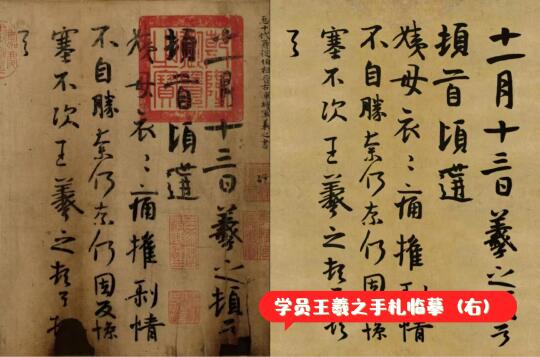 十一月十三日羲之頓首
頓首頃遘
姨母哀〻痛摧剝情
不自勝奈何奈何因反慘
塞不次王羲之頓首頓
首
十一月十三日羲之頓首
頓首頃遘
姨母哀〻痛摧剝情
不自勝奈何奈何
塞不次王羲之頓
首
学员王羲之手札临摹（右）